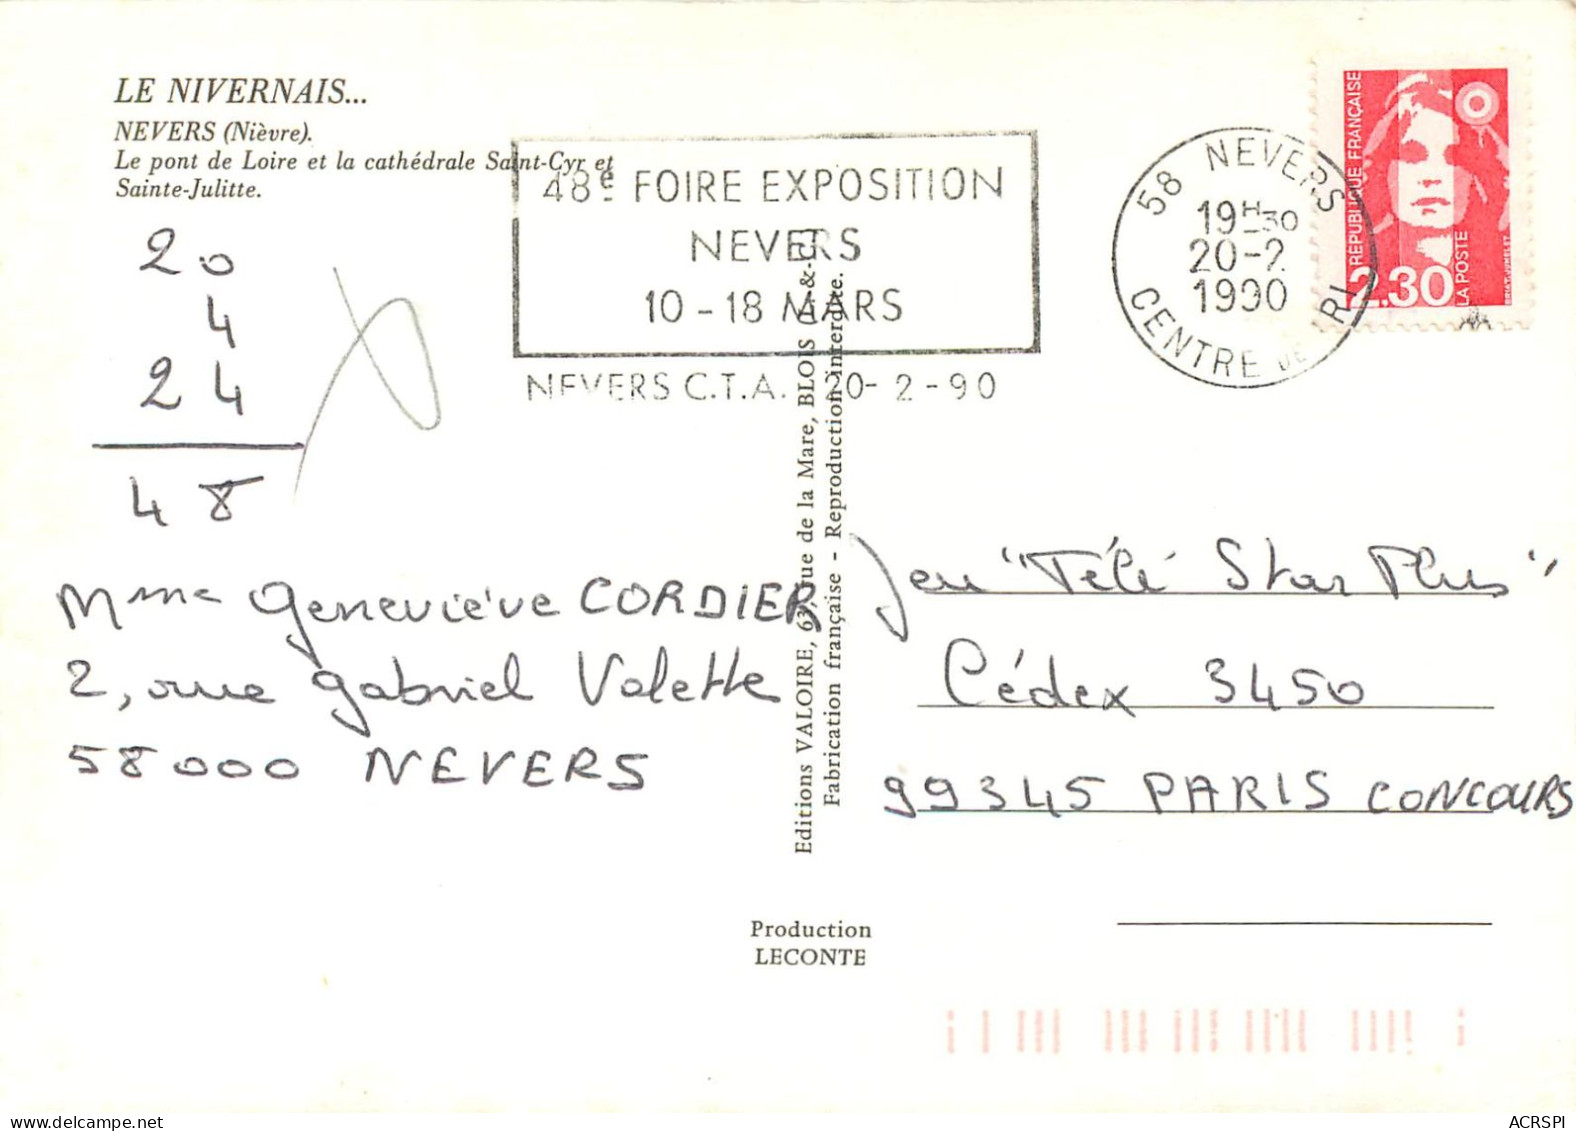 LE NIVERNAIS...
NEVERS (Nièvre).
Le pont de Loire et la cathédrale Saint-Cyr et
Sainte-Julitte.
48e FOIRE EXPOSITION
NEVERS
10 - 18 MARS
NEVERS C.T.A. 20 - 2 - 90
58 NEVERS
19H30
20-2
1990
CENTRE DE TRI
RÉPUBLIQUE FRANÇAISE
2.30
LA POSTE
20
4
24
48
Mme Geneviève CORDIER
2, rue Gabriel Valette
58000 NEVERS
Editions VALOIRE, 63, rue de la Mare, BLOIS (L.-&-C.)
Fabrication française - Reproduction interdite.
Jeu "Télé Star Plus"
Cédex 3450
99345 PARIS CONCOURS
Production
LECONTE
ACRSPI